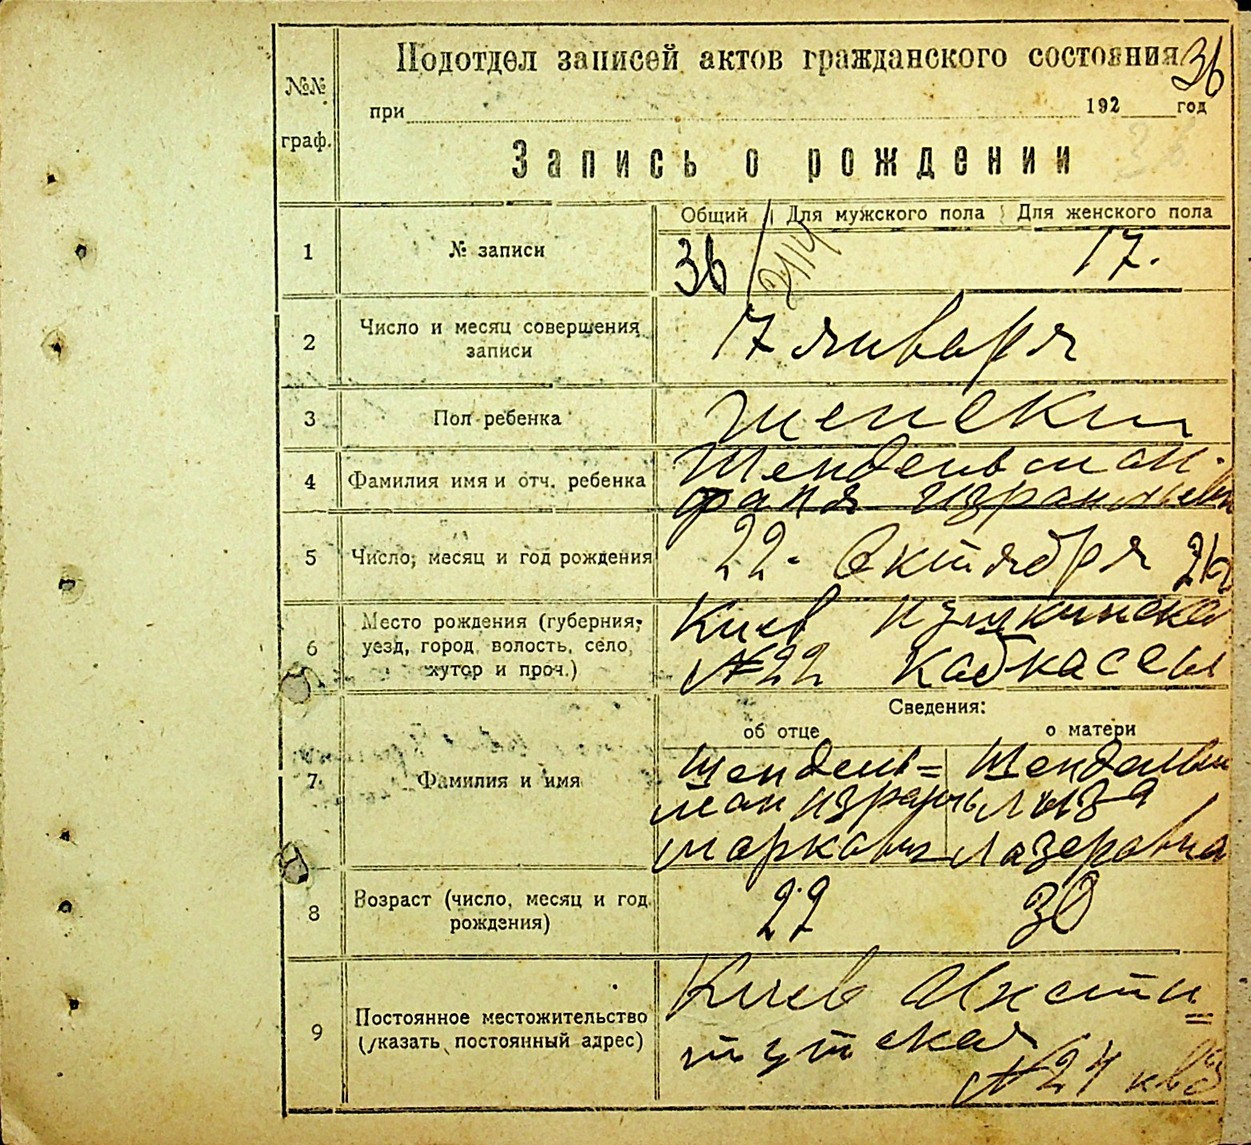 №№ граф.
Подотдел записей актов гражданского состояния 36
при 192 год
Запись о рождении
Общий Для мужского пола Для женского пола
1 № записи 36 2114 17.
2 Число и месяц совершения записи 17 января
3 Пол ребенка женски
4 Фамилия имя и отч. ребенка Шендельман.
фаня Израильевн
5 Число, месяц и год рождения 22. Октября 26
6 Место рождения (губерния, Киев Пушкинска
уезд, город, волость, село, №22
хутор и проч.)
Сведения:
об отце о матери
7 Фамилия и имя Шендель= Шендельм
ман Израиль Лыза
Маркович Лазеровна
8 Возраст (число, месяц и год рождения) 27 30
9 Постоянное местожительство Киев Инсти=
(указать постоянный адрес) тутская
№24 кв 3